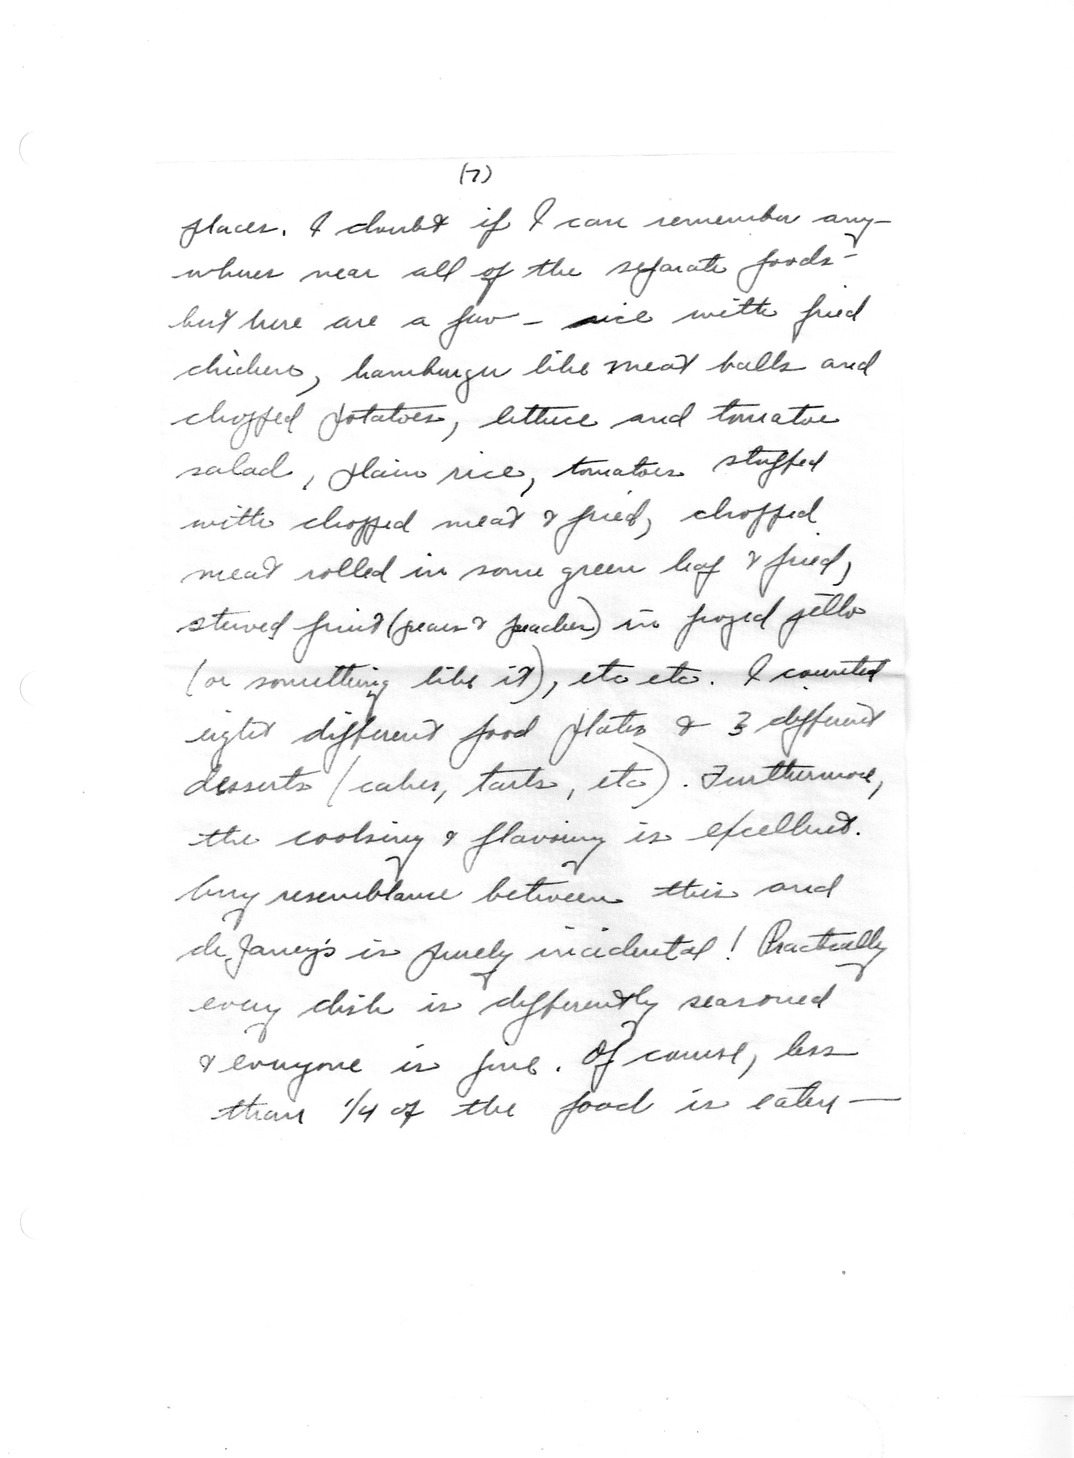 (7)
places. I doubt if I can remember any-
wheres near all of the separate foods -
but here are a few - rice with fried
chicken, hamburger like meat balls and
chopped potatoes, lettuce and tomatoe
salad, plain rice, tomatoes stuffed
with chopped meat & fried, chopped
meat rolled in some green leaf & fried,
stewed fruit (pears & peaches) in frozed jello
(or something like it), etc etc. I counted
eight different food plates & 3 different
desserts (cakes, tarts, etc). Furthermore,
the cooking & flavoring is excellent.
Any resemblance between this and
deJaney's is purely incidental! Practically
every dish is differently seasoned
& everyone is fine. Of course, less
than 1/4 of the food is eaten —